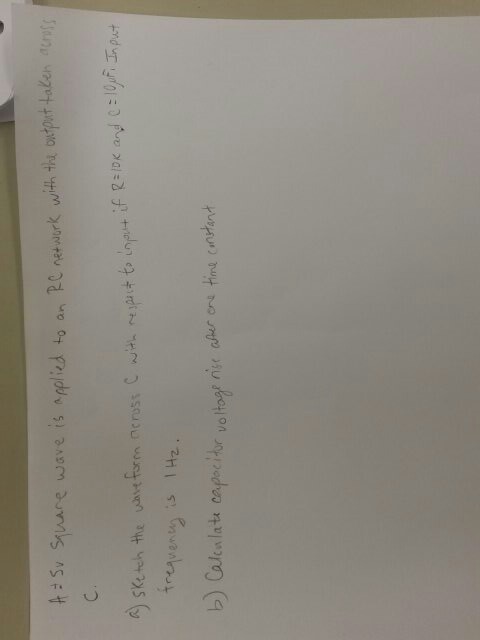 A ±5v Square wave is applied to an RC network with the output taken across
C.
a) Sketch the waveform across C with respect to input if R=10K and C=10μF. Input
frequency is 1 Hz.
b) Calculate capacitor voltage rise after one time constant